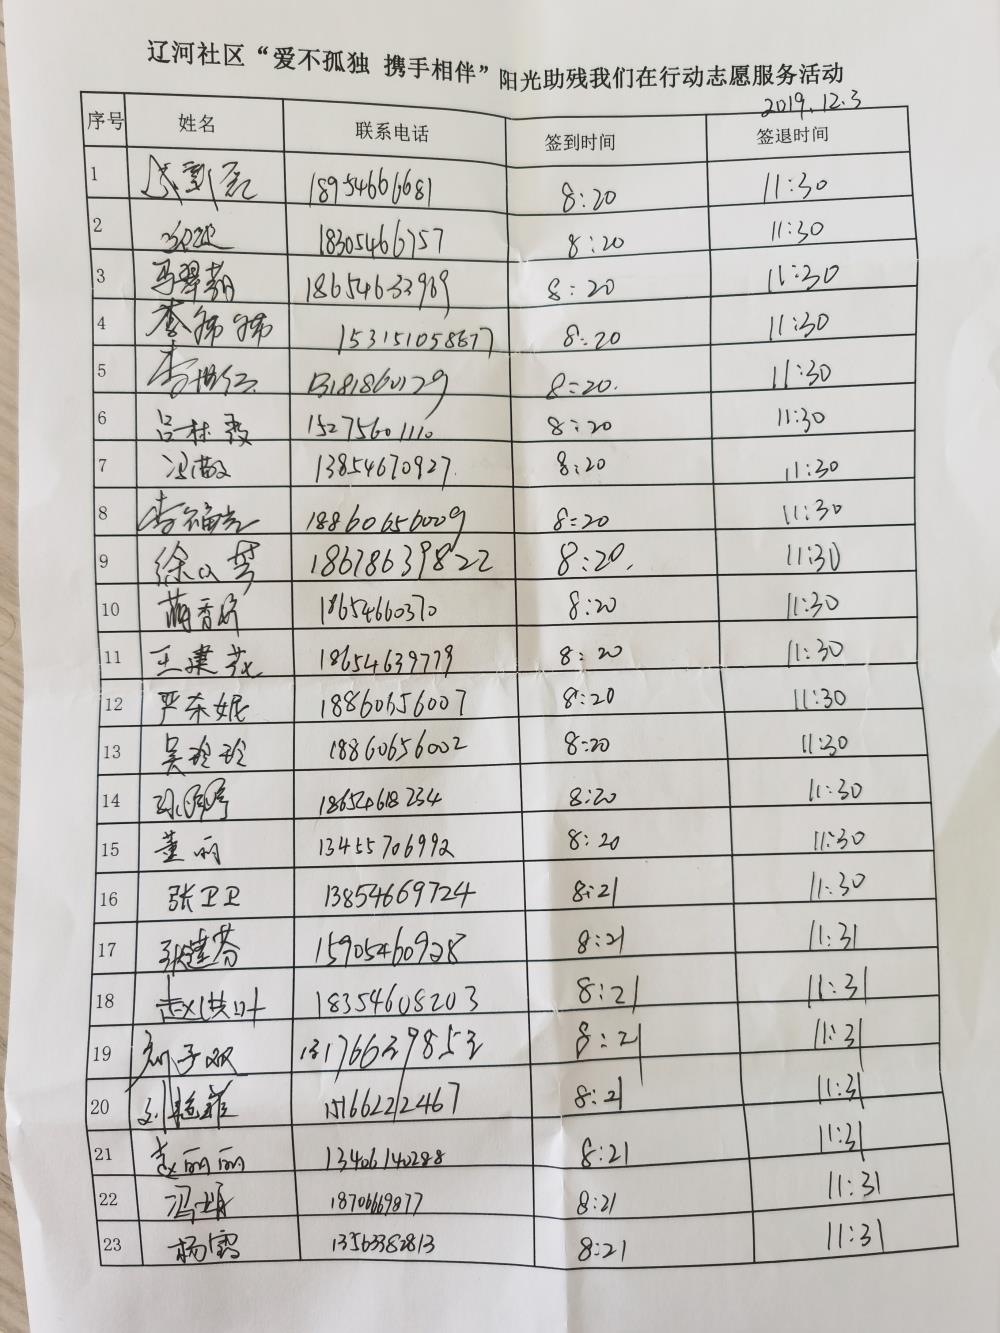 辽河社区“爱不孤独 携手相伴”阳光助残我们在行动志愿服务活动
2019.12.3
序号 姓名 联系电话 签到时间 签退时间
1 18954666681 8:20 11:30
2 18305466757 8:20 11:30
3 马翠娟 18654633969 8:20 11:30
4 李娣娣 153151058677 8:20 11:30
5 李 13181860179 8:20. 11:30
6 吕林霞 15275601110 8:20 11:30
7 冯敏 13854670927. 8:20 11:30
8 李福 18860656009 8:20 11:30
9 徐 芳 18678639822 8:20. 11:30
10 蒋香 18654660370 8:20 11:30
11 王建 18654639779 8:20 11:30
12 严东妮 18860656007 8:20 11:30
13 吴玲玲 18860656002 8:20 11:30
14 孙婷婷 18654618234 8:20 11:30
15 董丽 13455706992 8:20 11:30
16 张卫卫 13854669724 8:21 11:30
17 张建芬 15905460928 8:21 11:31
18 赵洪叶 18354608203 8:21 11:31
19 刘子双 13176639853 8:21 11:31
20 刘艳菲 15166222467 8:21 11:31
21 赵丽丽 13406140288 8:21 11:31
22 冯娟 18706669877 8:21 11:31
23 杨雪 13563382813 8:21 11:31